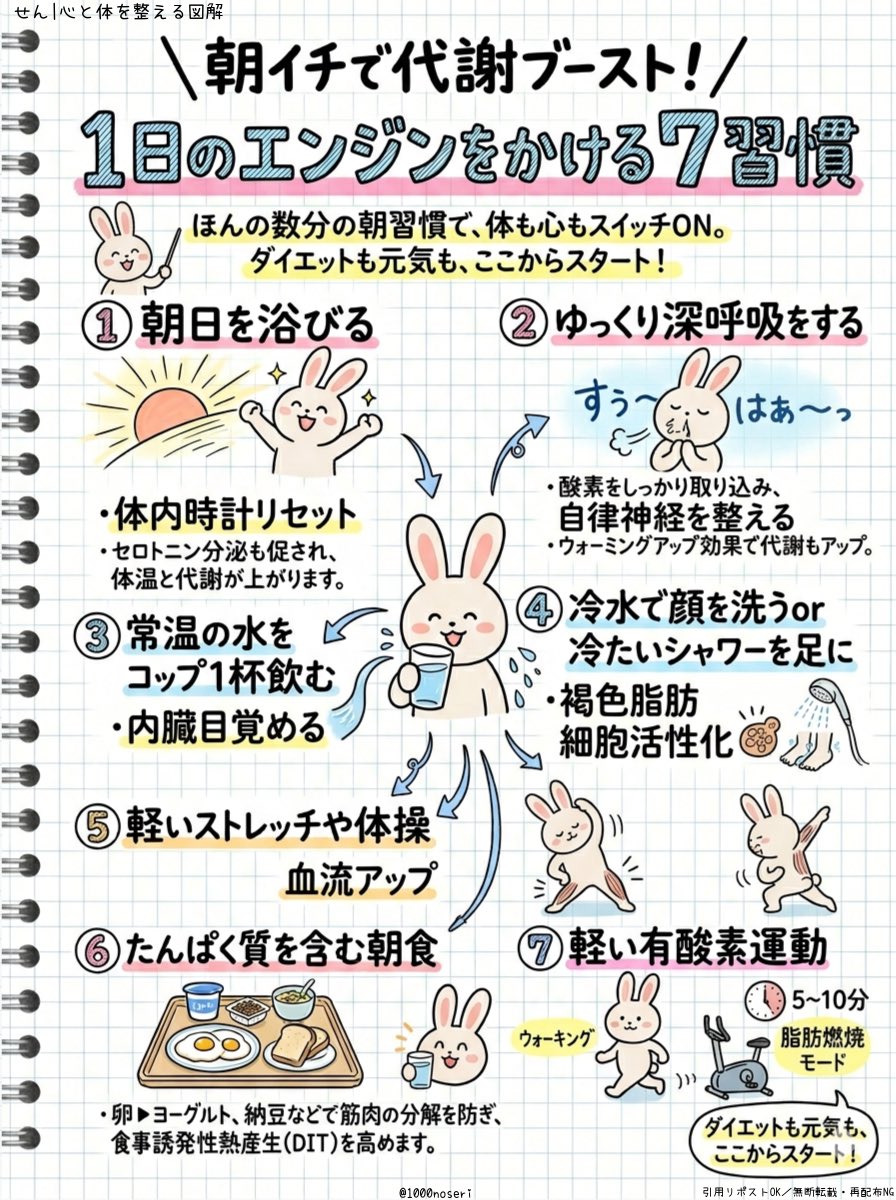 せん|心と体を整える図解
朝イチで代謝ブースト!
1日のエンジンをかける7習慣
ほんの数分の朝習慣で、体も心もスイッチON。
ダイエットも元気も、ここからスタート!
① 朝日を浴びる
・体内時計リセット
・セロトニン分泌も促され、
体温と代謝が上がります。
② ゆっくり深呼吸をする
すぅ〜
はぁ〜っ
・酸素をしっかり取り込み、
自律神経を整える
・ウォーミングアップ効果で代謝もアップ。
③ 常温の水を
コップ1杯飲む
・内臓目覚める
④ 冷水で顔を洗うor
冷たいシャワーを足に
・褐色脂肪
細胞活性化
⑤ 軽いストレッチや体操
血流アップ
⑥ たんぱく質を含む朝食
・卵▶ヨーグルト、納豆などで筋肉の分解を防ぎ、
食事誘発性熱産生(DIT)を高めます。
⑦ 軽い有酸素運動
5~10分
ウォーキング
脂肪燃焼
モード
ダイエットも元気も、
ここからスタート!
@1000noseri
引用リポストOK/無断転載・再配布NG